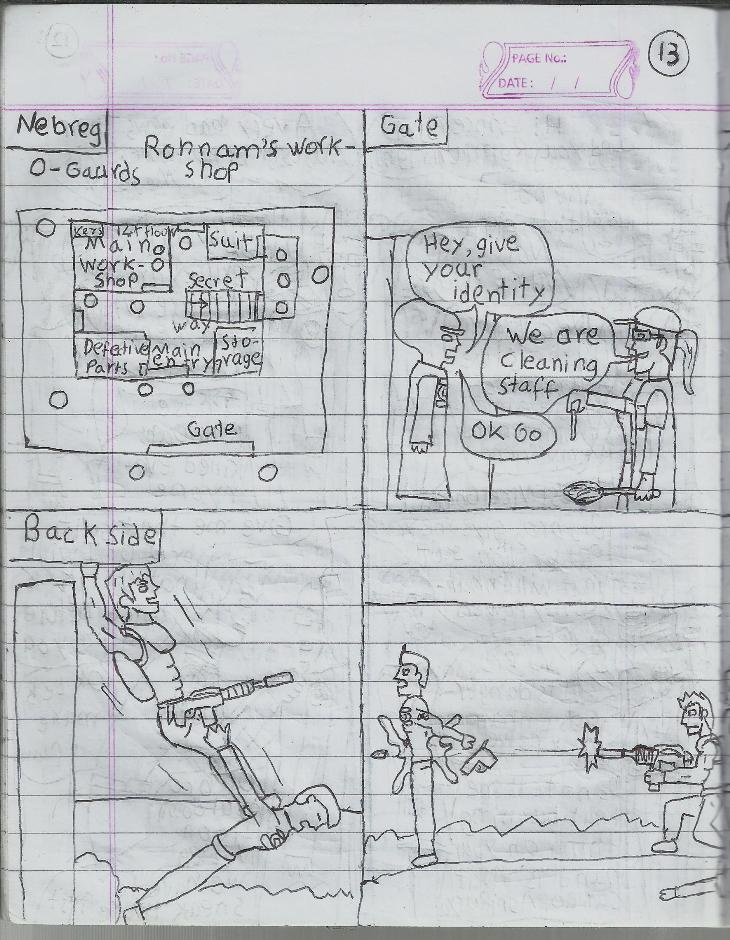 PAGE No.:
DATE: / /
13
Nebreg
Rohnam's work-
shop
O-Gaurds
Main
Work-
shop
Suit
Secret
way
Defetive
Parts
Main
entry
Sto-
rage
Gate
Gate
Hey, give
your
identity
We are
cleaning
staff
OK Go
Back side